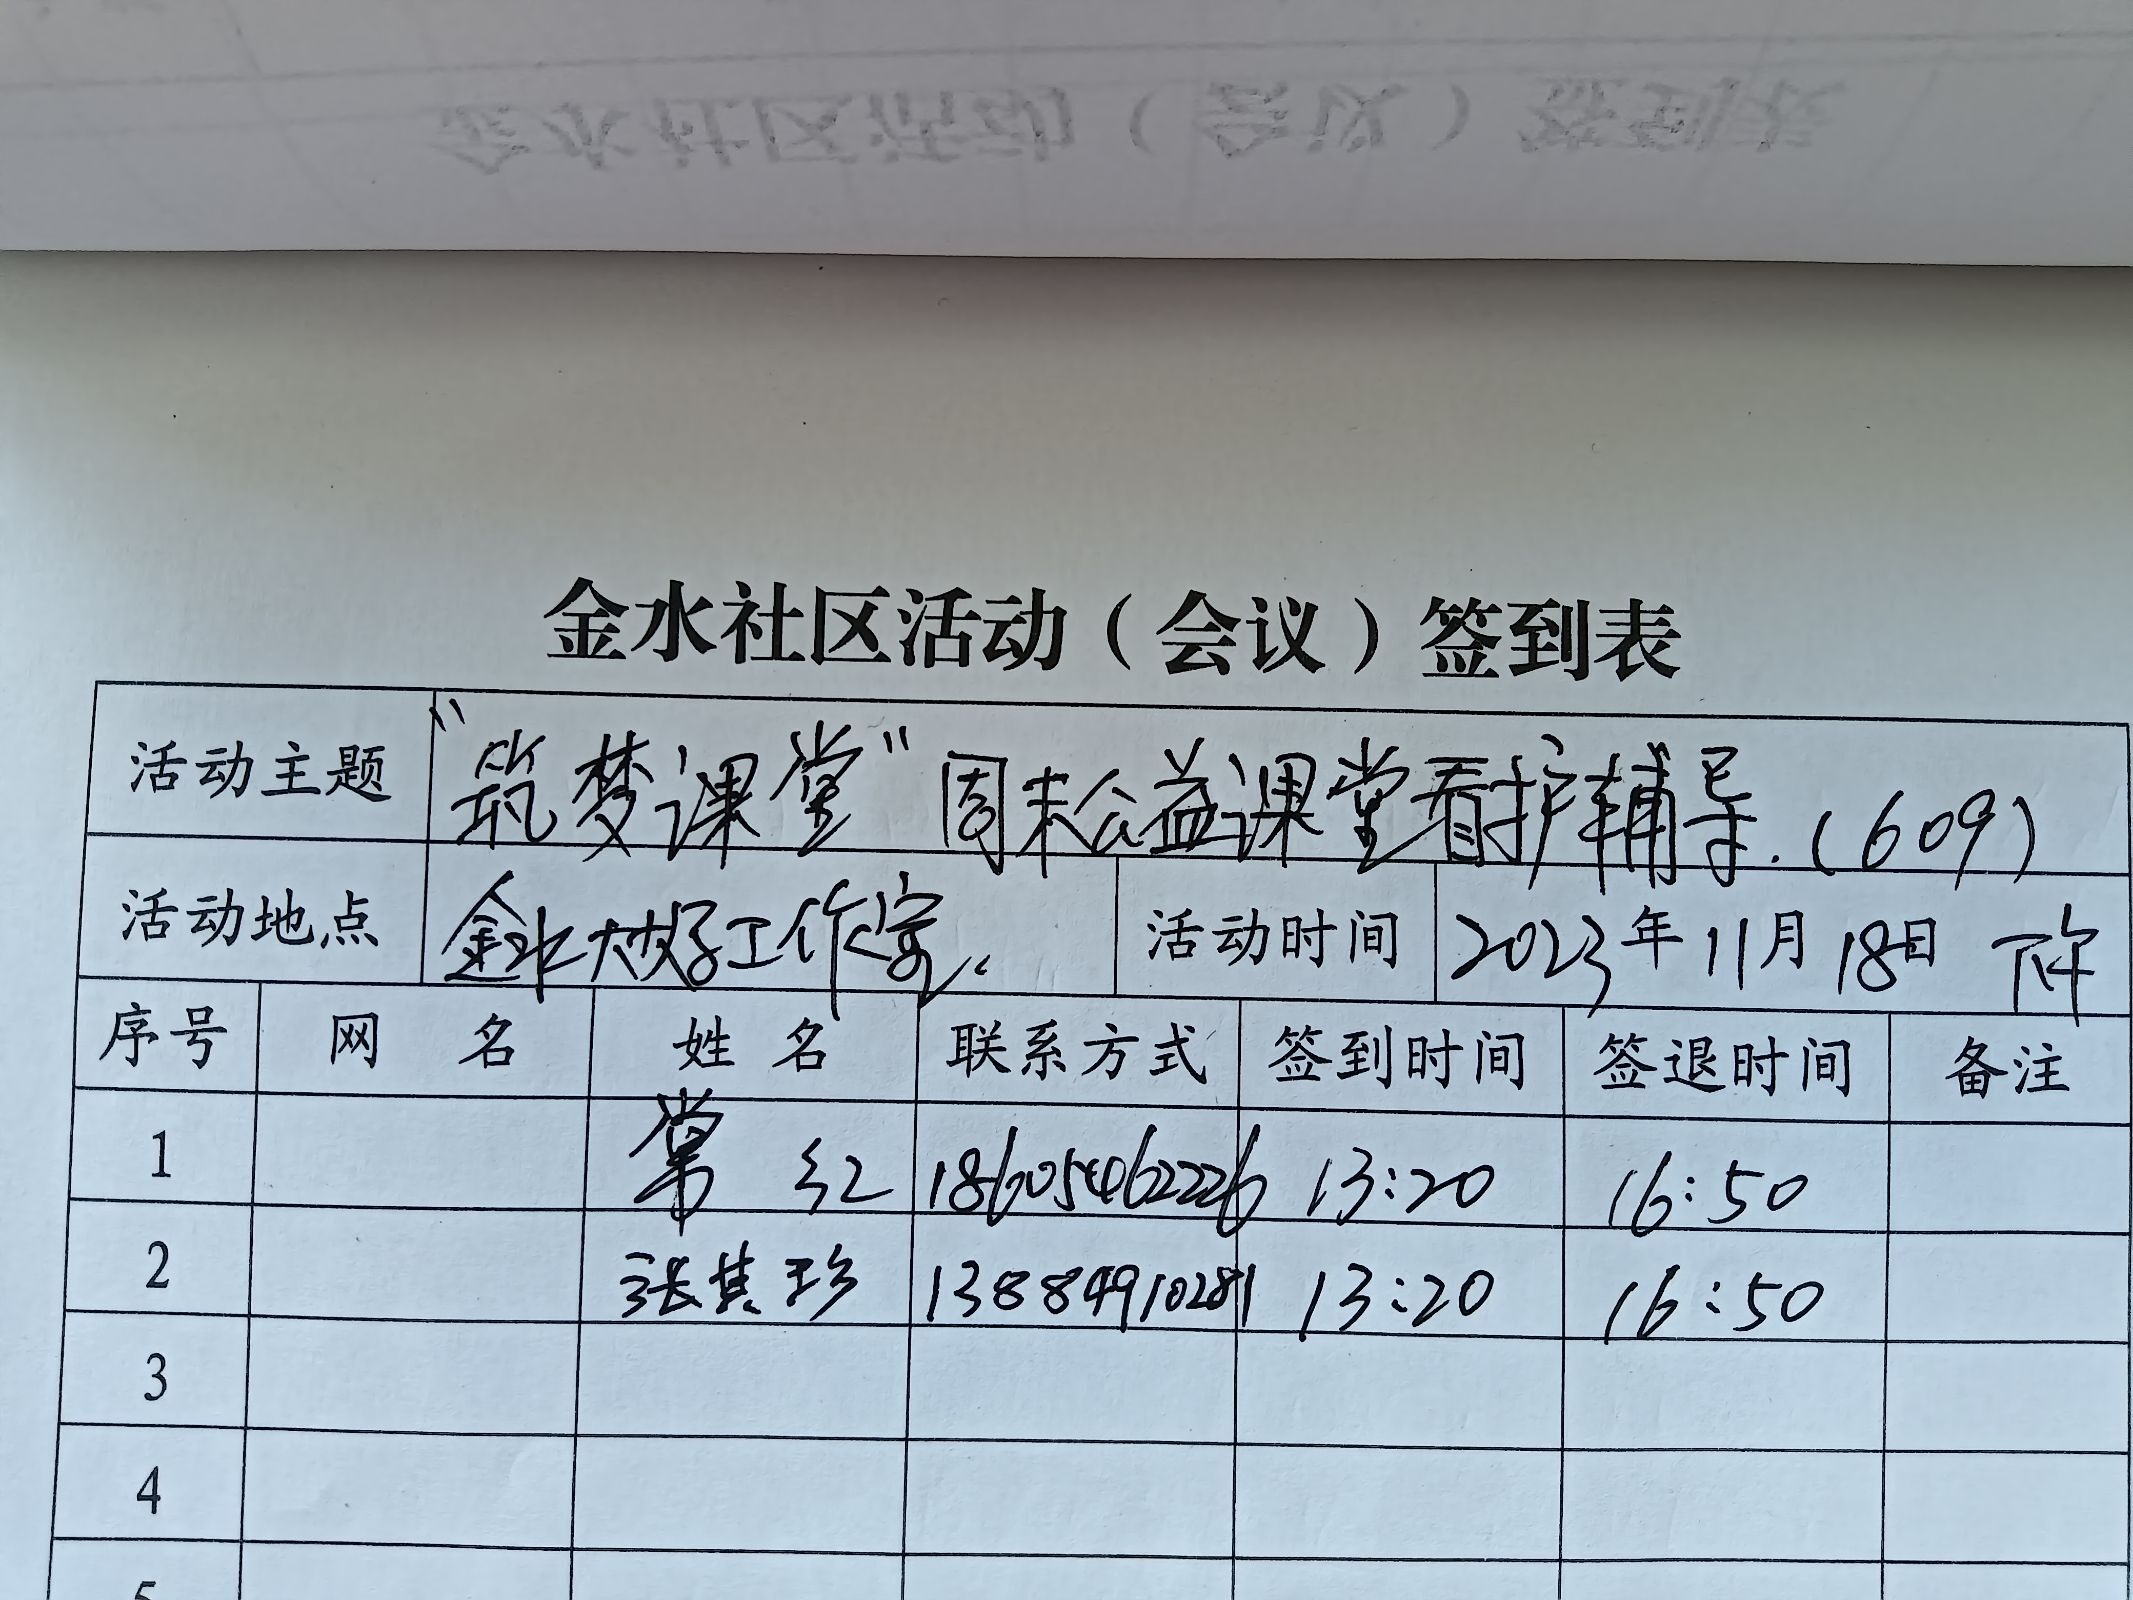 金水社区活动（会议）签到表
金水社区活动（会议）签到表
活动主题 “筑梦课堂”周末公益课堂看护辅导.(609)
活动地点 金水大嫂子工作室. 活动时间 2023年11月18日 下午
序号 网 名 姓 名 联系方式 签到时间 签退时间 备注
1 常 红 18605462226 13:20 16:50
2 张其珍 13884910281 13:20 16:50
3
4
5